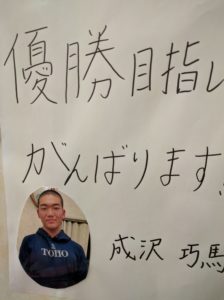 優勝目指し
がんばります!
TOHO
成沢 巧馬